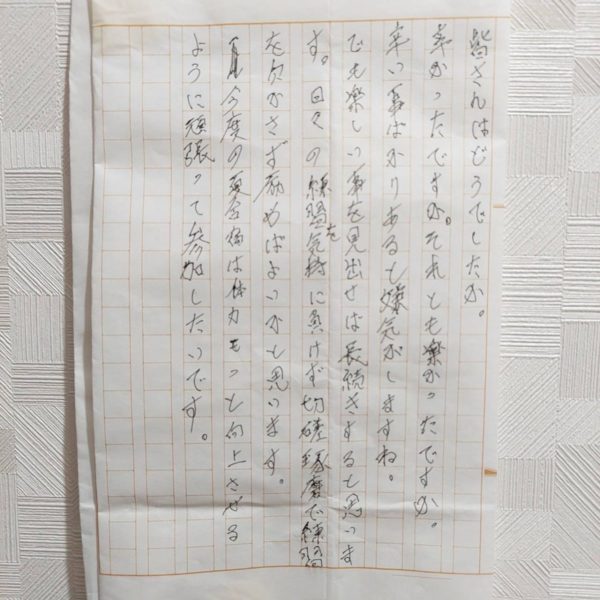 皆さんはどうでしたか。
辛かったですか。それとも楽かったですか。
辛い事ばかりあると嫌気がしますね。
でも楽しい事を見出せば長続きすると思いま
す。日々の練習を気持に負けず切磋琢磨で練習
を欠かさず励めばよいかと思います。
今度の夏合宿は体力もっと向上させる
ように頑張って参加したいです。